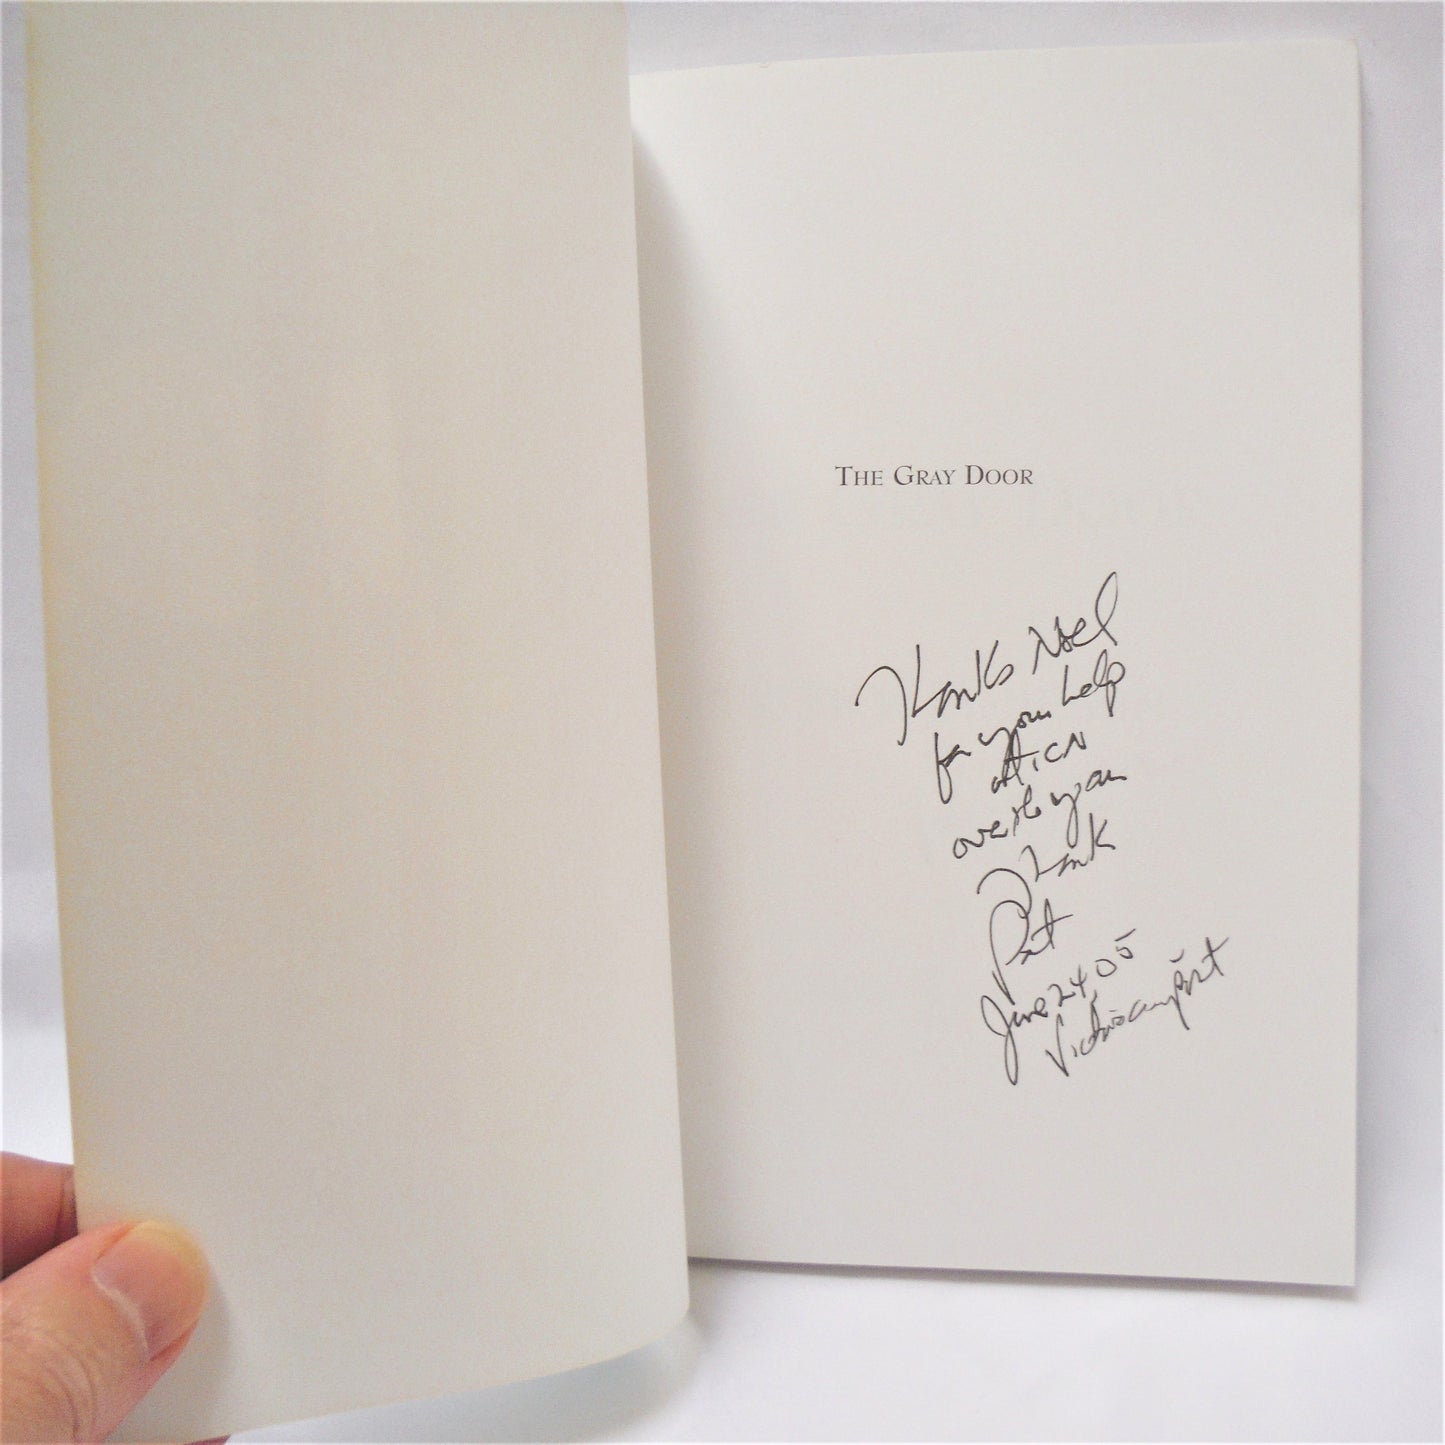 THE GRAY DOOR
Thanks Noel
for your help
at ICN
over the years
Thanks
Pat
June 24, 05